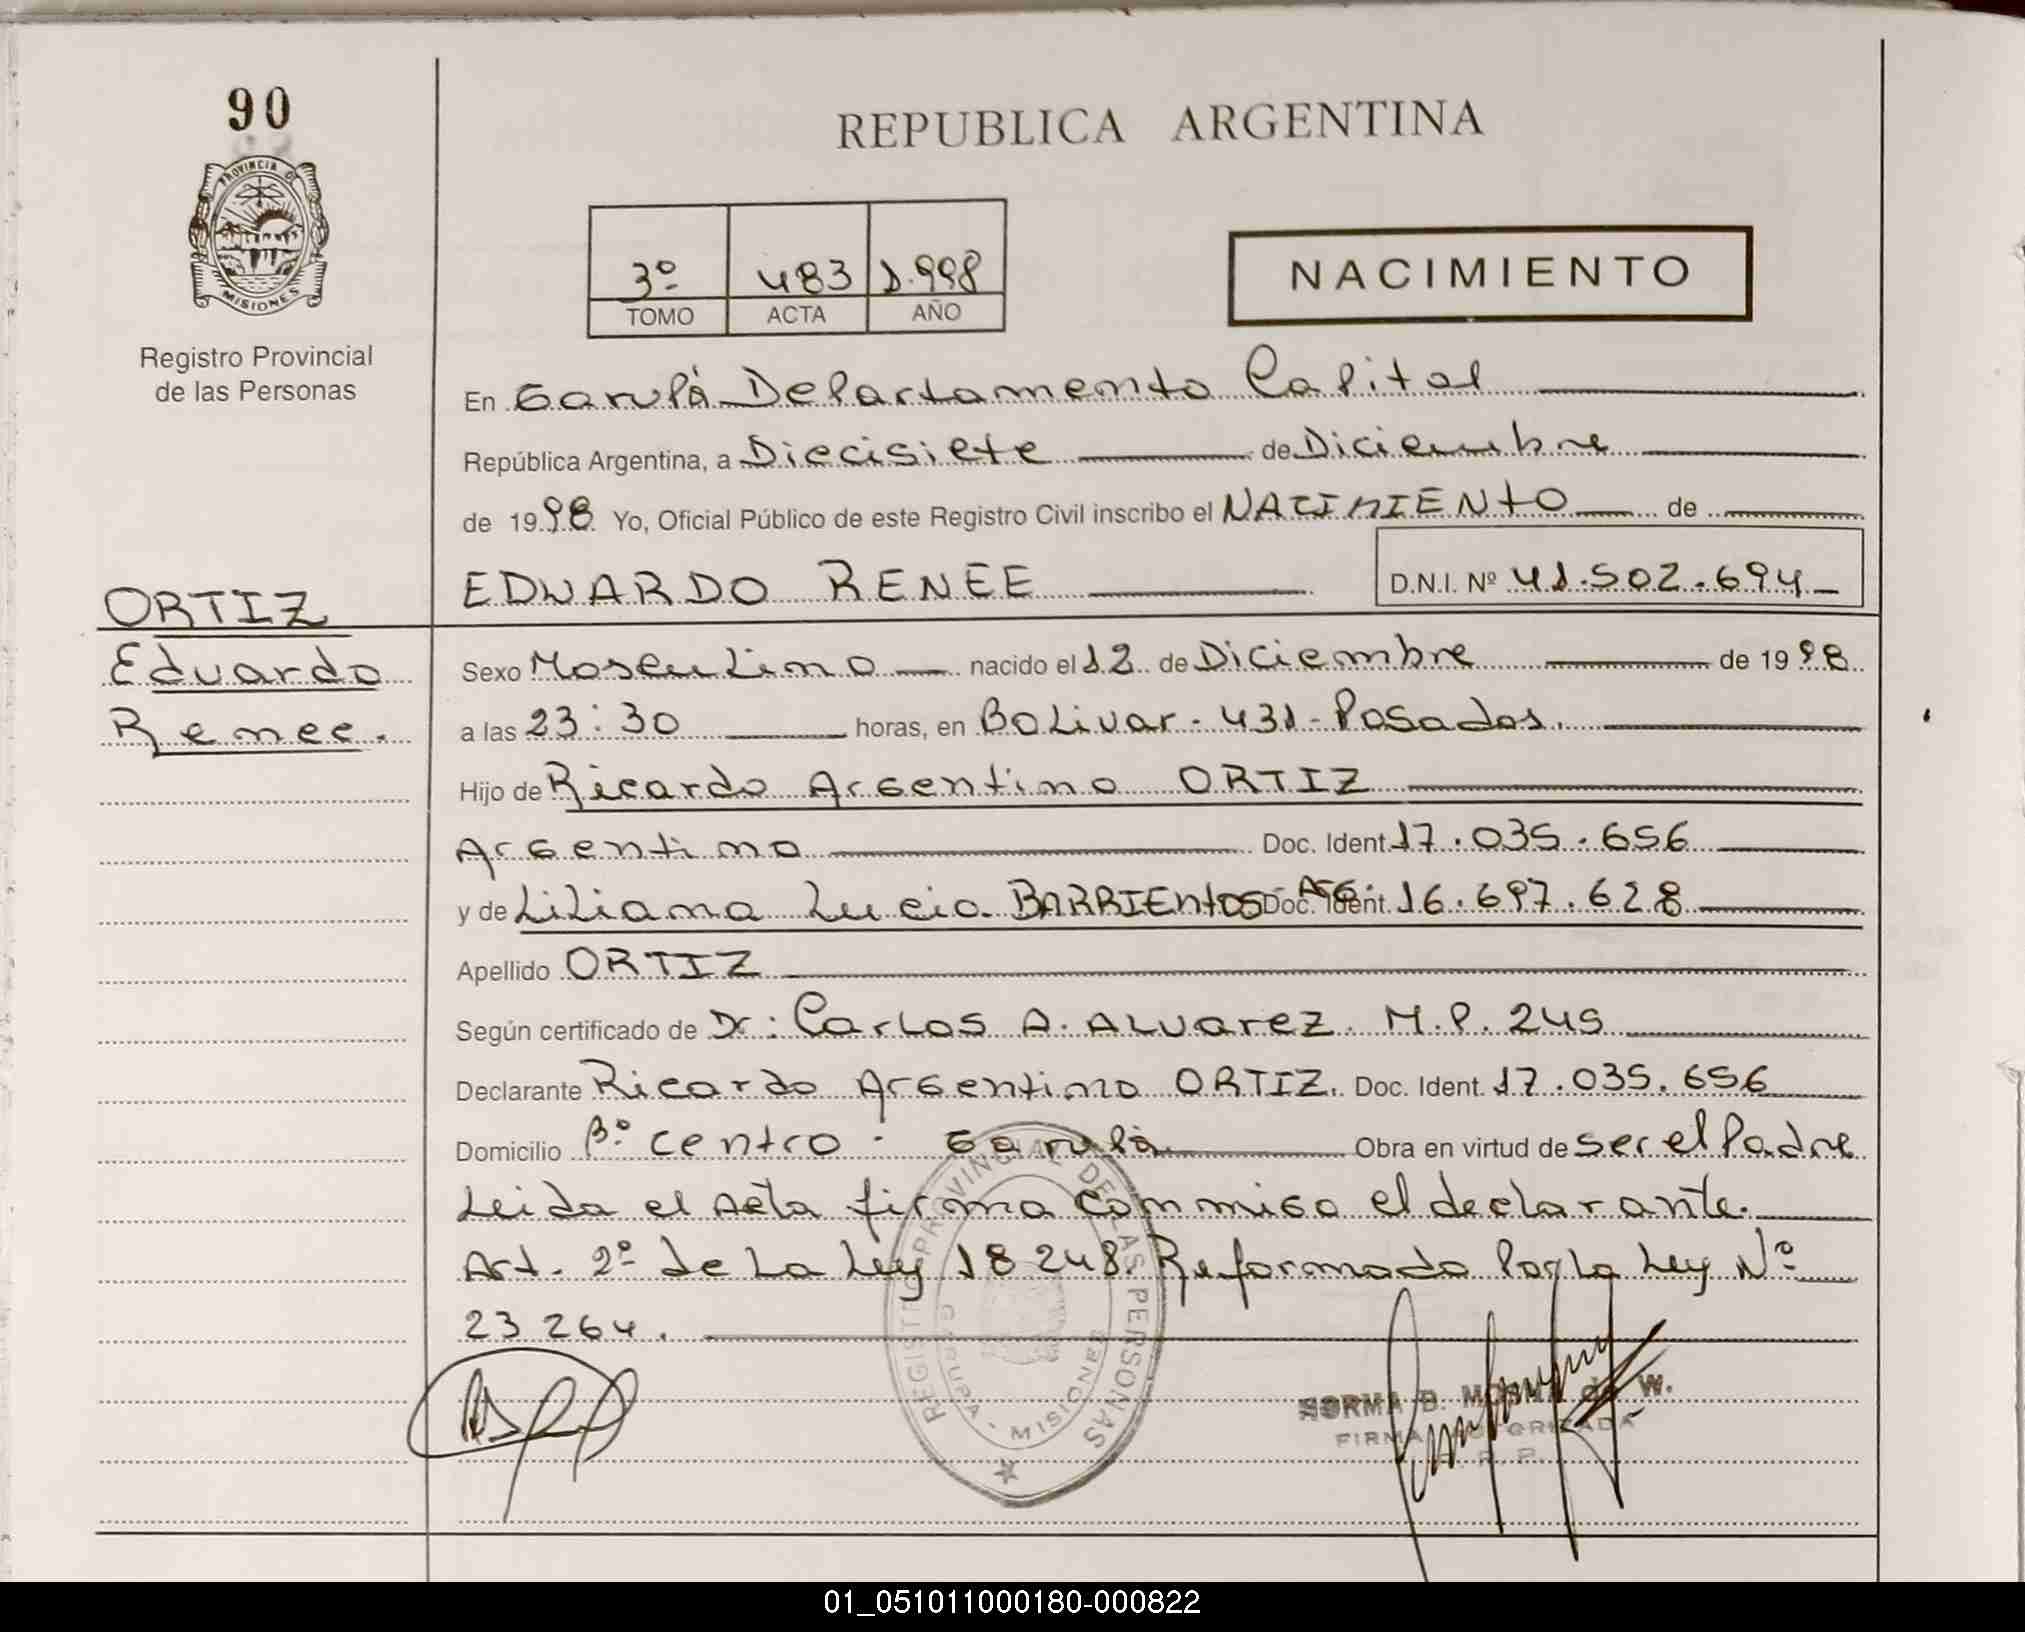 90
PROVINCIA D
MISIONES
Registro Provincial
de las Personas
REPUBLICA ARGENTINA
3º 483 1.998
TOMO ACTA AÑO
NACIMIENTO
En Garupá Departamento Capital
República Argentina, a Diecisiete de Diciembre
de 1998 Yo, Oficial Público de este Registro Civil inscribo el NACIMIENTO de
EDUARDO RENEE D.N.I. Nº 41.502.694
ORTIZ
Eduardo
Renee.
Sexo Masculino nacido el 12 de Diciembre de 1998
a las 23:30 horas, en Bolivar - 431 - Posadas.
Hijo de Ricardo Argentino ORTIZ
Argentino Doc. Ident. 17.035.656
y de Liliana Lucia BARRIENTOS - Arg. Doc. Ident. 16.697.628
Apellido ORTIZ
Según certificado de Dr: Carlos A. ALvarez M.P. 245
Declarante Ricardo Argentino ORTIZ. Doc. Ident. 17.035.656
Domicilio Bº Centro - Garupá Obra en virtud de ser el Padre
Leida el Acta firma conmigo el declarante.
Art. 2º de La Ley 18248. Reformado Por La Ley Nº
23264.
REGISTRO PROVINCIAL DE LAS PERSONAS
GARUPA - MISIONES
NORMA B. de W.
FIRMA AUTORIZADA
R. P.
01_051011000180-000822